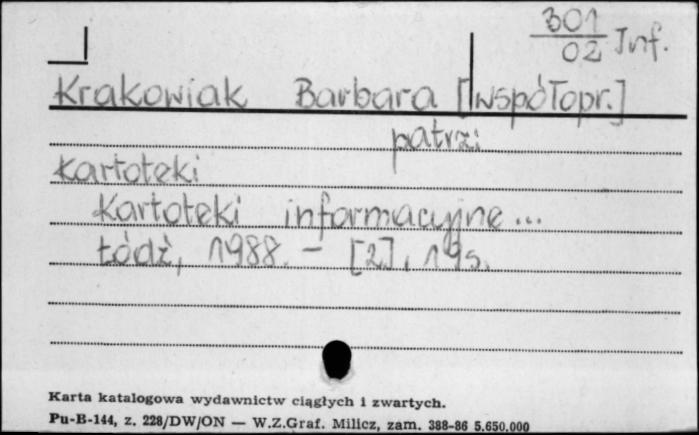 301
02 Inf.
Krakowiak Barbara [współopr.]
patrz:
Kartoteki
Kartoteki informacyjne...
Łódź, 1988. – [2], 19 s.
Karta katalogowa wydawnictw ciągłych i zwartych.
Pu-B-144, z. 228/DW/ON — W.Z.Graf. Milicz, zam. 388-86 5.650.000